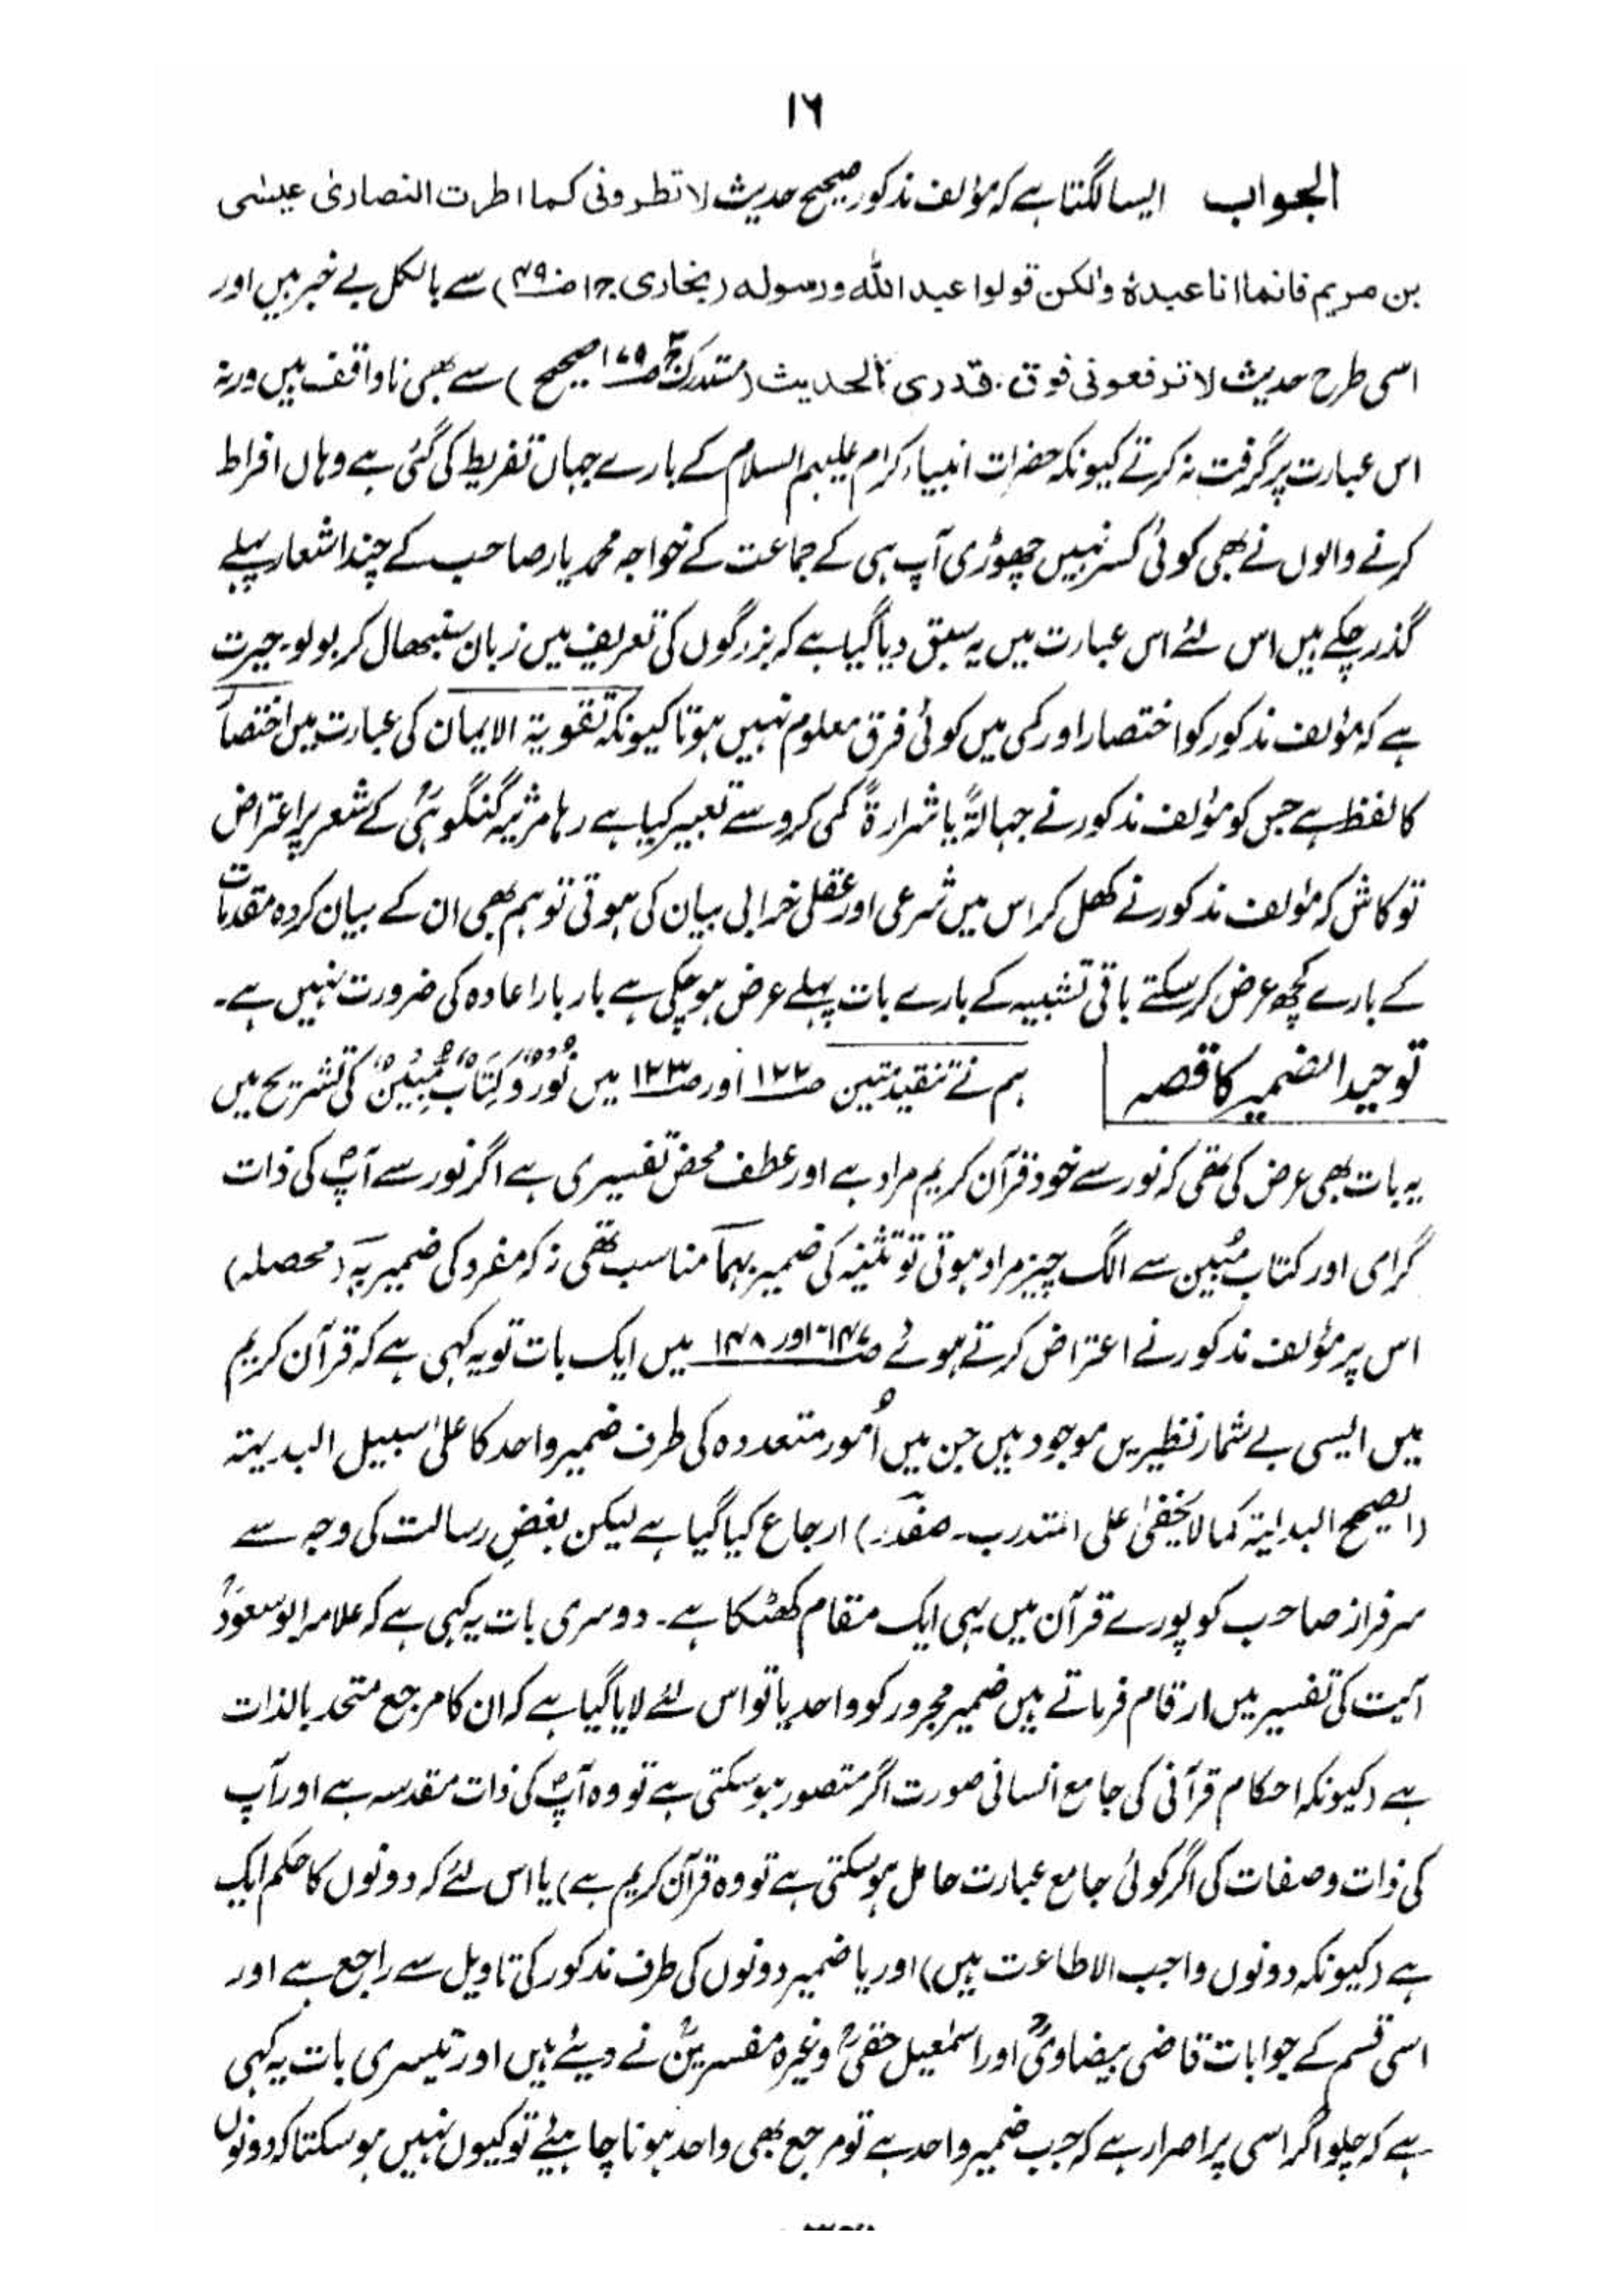 ۱۶
الجواب ایسا لگتا ہے کہ مؤلف مذکور صحیح حدیث لا تطرونی کما اطرت النصاریٰ عیسٰی
بن مریم فانما انا عبدہٗ والکن قولوا عبد اللہ ورسولہ (بخاری ج۱ ص۴۹۰) سے بالکل بے خبر ہیں اور
اسی طرح حدیث لا ترفعونی فوق قدری الحدیث (مستدرک ج۳ ص۱۷۹ صحیح) سے بھی ناواقف ہیں ورنہ
اس عبارت پر گرفت نہ کرتے کیونکہ حضرات انبیاء کرام علیہم السلام کے بارے جہاں تفریط کی گئی ہے وہاں افراط
کرنے والوں نے بھی کوئی کسر نہیں چھوڑی آپ ہی کے جماعت کے خواجہ محمد یار صاحب کے چند اشعار پہلے
گذر چکے ہیں اس لئے اس عبارت میں یہ سبق دیا گیا ہے کہ بزرگوں کی تعریف میں زبان سنبھال کر بولو۔ حیرت
ہے کہ مؤلف مذکور کو اختصار اور کمی میں کوئی فرق معلوم نہیں ہوتا کیونکہ تقویۃ الایمان کی عبارت میں اختصار
کا لفظ ہے جس کو مؤلف مذکور نے جہالۃً یا شرارۃً کمی کرو سے تعبیر کیا ہے رہا مرثیہ گنگوہیؒ کے شعر پر اعتراض
تو کاش کہ مؤلف مذکور نے کھل کر اس میں شرعی اور عقلی خرابی بیان کی ہوتی تو ہم بھی ان کے بیان کردہ مقدمات
کے بارے کچھ عرض کر سکتے باقی تشبیہ کے بارے بات پہلے عرض ہو چکی ہے بار بار اعادہ کی ضرورت نہیں ہے۔
توحید الضمیر کا قصہ ہم نے تنقید متین ص۱۲۲ اور ص۱۲۳ میں نُوْرٌ وَّکِتَابٌ مُّبِیْنٌ کی تشریح میں
یہ بات بھی عرض کی تھی کہ نور سے خود قرآن کریم مراد ہے اور عطف محض تفسیری ہے اگر نور سے آپؐ کی ذات
گرامی اور کتاب مُبین سے الگ چیز مراد ہوتی تو تثنیہ کی ضمیر بہما مناسب تھی نہ کہ مفرد کی ضمیر بہ (محصلہ)
اس پر مؤلف مذکور نے اعتراض کرتے ہوئے ص۱۴۷ اور ۱۴۸ میں ایک بات تو یہ کہی ہے کہ قرآن کریم
میں ایسی بے شمار نظیریں موجود ہیں جن میں اُمور متعددہ کی طرف ضمیر واحد کا علیٰ سبیل البدیہتہ
(الصیح البدلیۃ کما لا یخفیٰ علی المتدرب۔ صفدر) ارجاع کیا گیا ہے لیکن بغضِ رسالت کی وجہ سے
سرفراز صاحب کو پورے قرآن میں یہی ایک مقام کھٹکا ہے۔ دوسری بات یہ کہی ہے کہ علامہ ابو سعودؒ
آیت کی تفسیر میں ارقام فرماتے ہیں ضمیر مجرور کو واحد یا تو اس لئے لایا گیا ہے کہ ان کا مرجع متحد بالذات
ہے (کیونکہ احکام قرآنی کی جامع انسانی صورت اگر متصور ہو سکتی ہے تو وہ آپؐ کی ذات مقدسہ ہے اور آپ
کی ذات وصفات کی اگر کوئی جامع عبارت حامل ہو سکتی ہے تو وہ قرآن کریم ہے) یا اس لئے کہ دونوں کا حکم ایک
ہے (کیونکہ دونوں واجب الاطاعت ہیں) اور یا ضمیر دونوں کی طرف مذکور کی تاویل سے راجع ہے اور
اسی قسم کے جوابات قاضی بیضاویؒ اور اسمٰعیل حقیؒ وغیرہ مفسرینؒ نے دیئے ہیں اور تیسری بات یہ کہی
ہے کہ چلو اگر اسی پر اصرار ہے کہ جب ضمیر واحد ہے تو مرجع بھی واحد ہونا چاہیئے تو کیوں نہیں ہو سکتا کہ دونوں